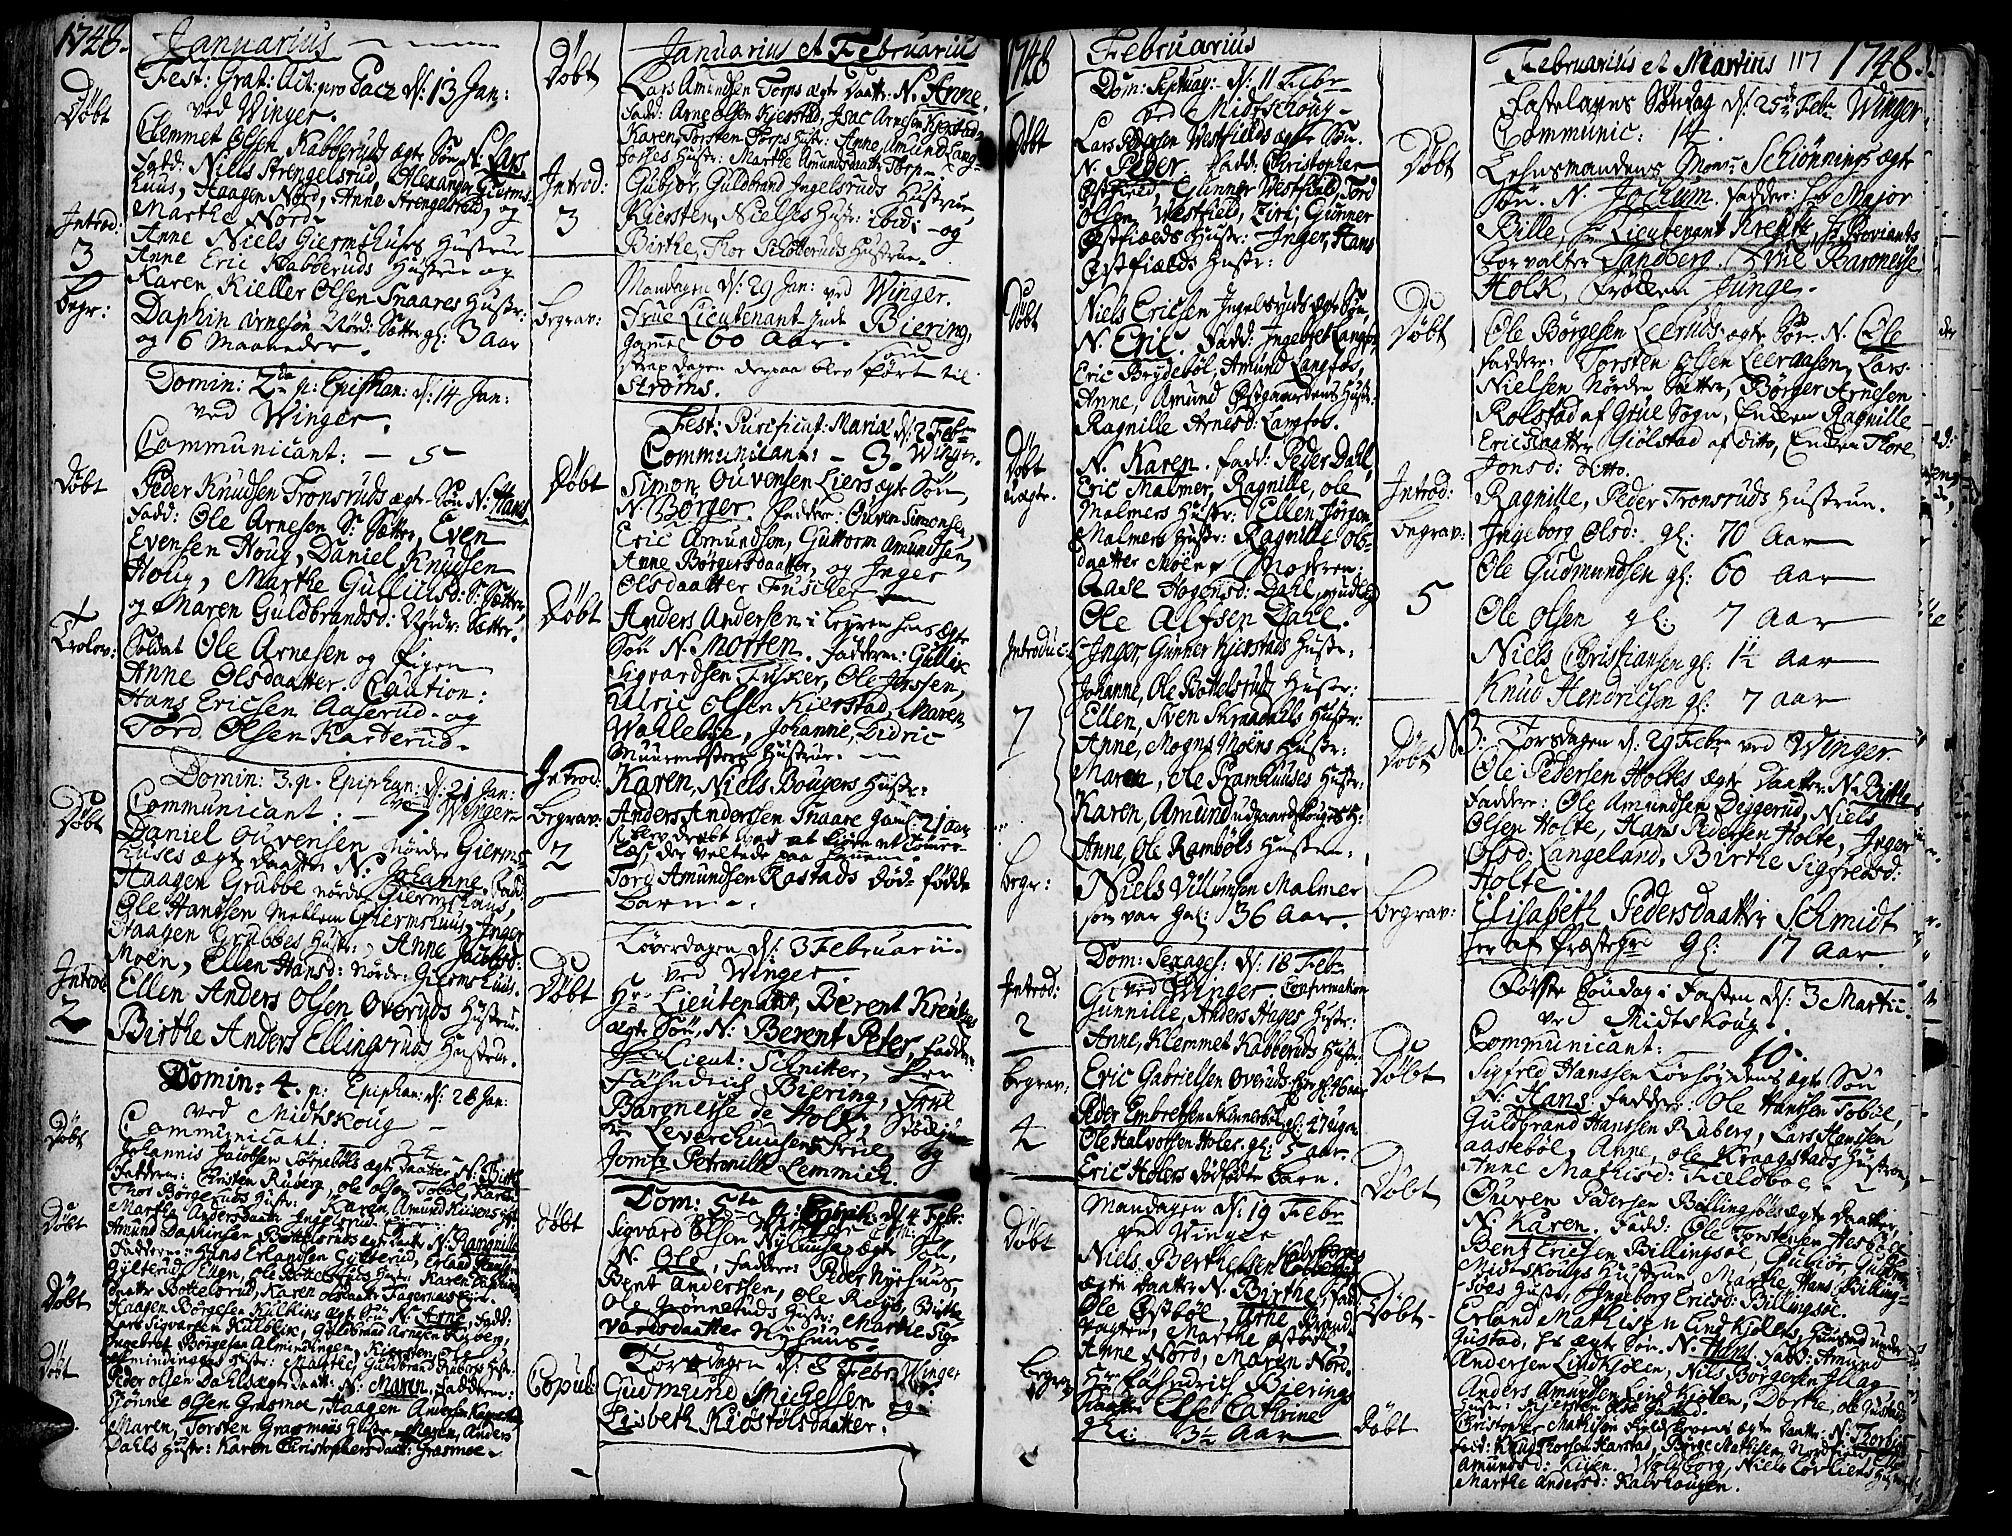 1748.
Januarius
Fest: Grat: Act: pro Pace d: 13 Jan:
ved Winger.
Døbt
Clemmet Olsen Kabberuds ægte Søn N: Lars
Fadd: Niels Strengelsrud, Alexander Gierms-
huus, Haagen Nord, Anne Strengelsrud, og
Marthe Nord.
Introd:
3
Anne Niels Giermshuses Hustrue
Anne Eric Kabberuds Hustrue og
Karen Kieller Olsen Snaares Hustr:
Begr:
Daphin Arnesøn Nörd: Sætter gl: 3 Aar
og 6 Maaneder.
Domin: 2da p: Epiphan: d: 14 Jan:
ved Winger.
Communicant: — 5 —
Døbt
Peder Knudsen Tronsruds ægte Søn N: Hans
Fadd: Ole Arnesøn S: Sætter, Even
Evensen Houg, Daniel Knudsen
Houg, Marthe Gullichsd: S: Sætter,
og Maren Guldbrandsd: Nordr: Sætter.
Trolov:
Soldat Ole Arnesen og Pigen
Anne Olsdaatter. Caution:
Hans Ericsen Aaserud og
Tord Olsen Karterud.
Domin: 3. p. Epiphan: d: 21 Jan:
Communicant: — 7 ved Winger
Døbt
Daniel Ouvensen Nørdre Gierms-
huses ægte Daatter N: Johanne. Fadd:
Haagen Grubbe nordre Giermshuus,
Ole Hansen Mellem Giermshuus, Inger
Haagen Grubbes Hustr: Anne Jacobsd:
Moen, Ellen Hansd: Nørdr: Giermshuus.
Introd:
2
Ellen Anders Olsen Overuds Hustrue
Birthe Anders Ellingsruds Hustrue.
Domin: 4. p: Epiphan: d: 28 Jan:
ved Midtskoug
Communicant: — 34 —
Døbt
Johannis Jacobsen Sørpebøls ægte Daatter N: Birthe
Faddere: Christen Ruberg, Ole Olsen Tobøl, Karen
Thor Børgeruds Hustr: Karen Amund
Martha Andersdaatter Ingelsrud
Døbt
Amund Daphinsen Bottelsruds ægte Daatter N: Ragnille
Faddere: Hans Erlandsen Gylterud, Erland Hansen
Gylterud, Ellen, Ole Bottelsruds Hustr: Karen
daatter Bottelsrud, Karen Olsdaatter
Døbt
Haagen Børgesen Kulbliks ægte Søn N: Arne, Fadd:
Lars Sigvarsen Kulblik, Guldbrand Arnesen Ruberg,
Ingebret Børgesen Almindingen, Kiersten Ole
Almindingens Hustr: Malene, Guldbrand Rubergs Hustr:
Døbt
Peder Olsen Dahls ægte Daatt: N: Maren. Faddere:
Tønne Olsen Grasmoe, Haagen Andersen
Maren, Torsten Grasmoes Hustr: Maren, Anders
Dahls Hustr: Karen Christophersdaatt: Grasmoe
Januarius et Februarius
Døbt
Lars Amundsen Torps ægte Daatter N: Anne.
Fadd: Arne Olsen Kjerstad, Isac Arnesen Kjerstad,
Karen, Torsten Torps Hustr: Anne, Amund Lang-
fosses Hustr: Marthe Amundsdaatt: Torp
Introd:
3
Gubjør, Guldbrand Ingelsruds Hustrue,
Kjersten, Nielses Hustr: ibid: og
Birthe, Thor Slotteruds Hustrue.
Mandagen d: 29 Jan: ved Winger.
Begrav:
Frue Lieutenant Biering,
Gamel 60 Aar.
dagen derpaa blev ført til
Strøms.
Fest: Purificat: Mariæ d: 2 Febr:
Communicant: — 3. Winger.
Døbt
Simon Ouvensen Liers ægte Søn
N: Børger. Faddere: Ouven Simonsen
Eric Amundsøn, Guttorm Amundsen
Anne Børgersdaatter, og Inger
Olsdaatter Fusiller
Døbt
Anders Andersen i Legren hans ægte
Søn N. Morten. Faddere: Gullik
Sigvardsen Fisker, Ole Jenssen,
Ulric Olsen Kierstad, Maren
Wahlebye, Johanne, Didric
Muurmesters Hustrue.
Introd:
Karen, Niels Bougers Hustr:
Begrav:
2
Anders Andersen Snaare gaml 21 Aar
blev dræbt
der veltede paa hannem.
Tord Amundsen Rastads død-fødde
Barn.
Løverdagen d: 3 Februarii
ved Winger.
Døbt
Hr: Lieutenant Berent Kreutzes
ægte Søn, N: Berent Peter, Faddere
Herr Lieut: Schnitter, Herr
Fähndrich Biering, Frue
Baronesse de Holk,
Leverchuusens Frue, og
Jomfr: Petronille Lemmich.
Dom: 5ta p: Epiph: d: 4 Febr:
Døbt
Sigvard Olsen Nyhuuses ægte Søn,
N. Ole, Faddere: Peder Nyehuus,
Bent Anderssen, Ole Røys, Birthe
Ole Grønneruds Hustr: Marthe Sig-
vardsdaatter Nyhuus.
Torsdagen d: 8 Febr: Winger
Copul:
Gudmund Michelsen og
Lisbeth Kiøstølsdaatter.
1748
Februarius
Dom: Septuag: d: 11 Febr
ved Midtschoug
Døbt
Lars Pedersen Westfields ægte Søn
N. Peder. Fadd: Christopher
Østfield, Gunner Westfield, Tord
Olsen Westfiel, Siri, Gunner
Østfields Hustr: Inger, Hans
Østfields Hustr:
Døbt
Niels Ericsen Ingelsruds ægte Søn,
N: Eric. Fadd: Ingebret Langfos,
Eric Brydebøl, Amund Langfos,
Anne, Amund Østgaardens Hustr:
Ragnille Arnesd: Langfos.
Døbt
uægte.
N. Karen. Fadd: Peder Dahl,
Eric Malmer, Ragnille, Ole
Malmers Hustr: Ellen Jørgen
Malmers Hustr: Ragnille Ols-
daatter Moen. Moderen:
Aase Hagensd: Dahl, udlagd
Ole Alfsen Dahl.
Introduc:
7
Inger, Gunner Kjerstads Hustr:
Johanne, Ole Bottelsruds Hustr:
Ellen, Sven Skraadalls Hustr:
Anne, Mogns Moens Hustr:
Maren, Ole Framhuuses Hustr:
Karen, Amund Udgaardskouges H:
Anne, Ole Rambøls Hustrue.
Begr:
Niels Villumsen Malmer
som var Gal: 36 Aar.
Dom: Sexages: d: 18 Febr
ved Winger Confirmation
Introd:
2
Gunnille, Anders Hages Hustr:
Anne, Klemmet Kabberuds Hustr:
Begrav:
4
Eric Gabrielsen Overuds
Peder Embretsen Skinnerbøl gl: 47 uger
Ole Halvorsen Holer gl: 5 Aar
Eric Holers dødfødte Barn.
Mandagen d: 19 Febr
ved Winger
Døbt
Niels Berthelsen Kalsberges
ægte Daatter N. Birthe, Fadd:
Ole Østbøl, Arne
Marthe Østbøl,
Anne Nord, Maren Nord.
Begrav
Hr: Fähndrich Bierings
Daatter Else Cathrine
gl: 3½ Aar
Februarius et Martius 117 1748.
Fastelavns Søndag d: 25de Febr Winger
Communic: 14.
Døbt
Lehnsmandens Mons: Schiønnings ægte
Søn. N. Jochum. Faddere: Hr Major
Bille, Hr Lieutenant Kreutz, Hr Proviants
Forvalter Sandberg, Frue Baronesse
Holk, Frøken Junge.
Døbt
Ole Børgesen Leeruds ægte Søn. N. Ole
Faddere: Torsten Olsen Leeraasen, Lars
Nielsen Nordre Sætter, Børger Arnesen
Rolstad af Grue Sogn, Enken Ragnille
Ericsdaatter Giølstad af ditto, Enken Thore
Jonsd: Ditto.
Introd:
Ragnille, Peder Tronsruds Hustrue.
Begrav:
5
Ingeborg Olsd: gl: 70 Aar
Ole Gudmundsen gl: 60 Aar
Ole Olsen gl: 7 Aar
Niels Christiansen gl: 1½ Aar
Knud Hendricsen gl: 7 Aar
NB: Torsdagen d: 29 Febr ved Winger.
Døbt
Ole Pedersen Holtes ægte Daatter N: Birthe
Faddere: Ole Amundsen Diggerud, Niels
Olsen Holte, Hans Pedersen Holte, Inger
Olsd: Langeland, Birthe Sigfredsd:
Holte
Begrav:
Elisabeth Pedersdaatter Schmidt
her af Præstegrd gl: 17 Aar.
Første Søndag i Fasten d: 3 Martii.
ved Midtskoug.
Communicant: — 10.
Døbt
Sigfred Hanssen Lövhøydens ægte Søn
N: Hans. Faddere: Ole Hanssen Tobøl,
Guldbrand Hanssen Ruberg, Lars Hanssen
Aastebøl, Anne, Ole Kraagstads Hustrue,
Anne Mathisd: Fieldboe.
Døbt
Ouven Pedersen Billingsøes ægte Daatter,
N: Karen. Fadd: Ole Torstensen
Bent Ericsen Billingsøe, Gubjør, Guldbr:
Midtskougs Hustrue, Marthe, Hans Billing-
søes Hustr: Ingeborg Ericsd: Billingsøe.
Døbt
Erland Mathisen Lindkjølens, Huusmd under
Gustad, hs ægte Søn. N. Hans, Fadd: Amund
Andersen Lindkjølen, Niels Børgersen
Anders Amundsen Lindkjølen, Dorthe, Ole Gustads
Døbt
Christopher Mathisøn ægte Daatt: N: Thordis
Fadd: Knud Thorsen Harstad, Børge Mathisen Nordfield,
Amundsd: Lien. Wolborg, Niels Løvliens Hustr:
Marthe Andersd: Kalvhougen.